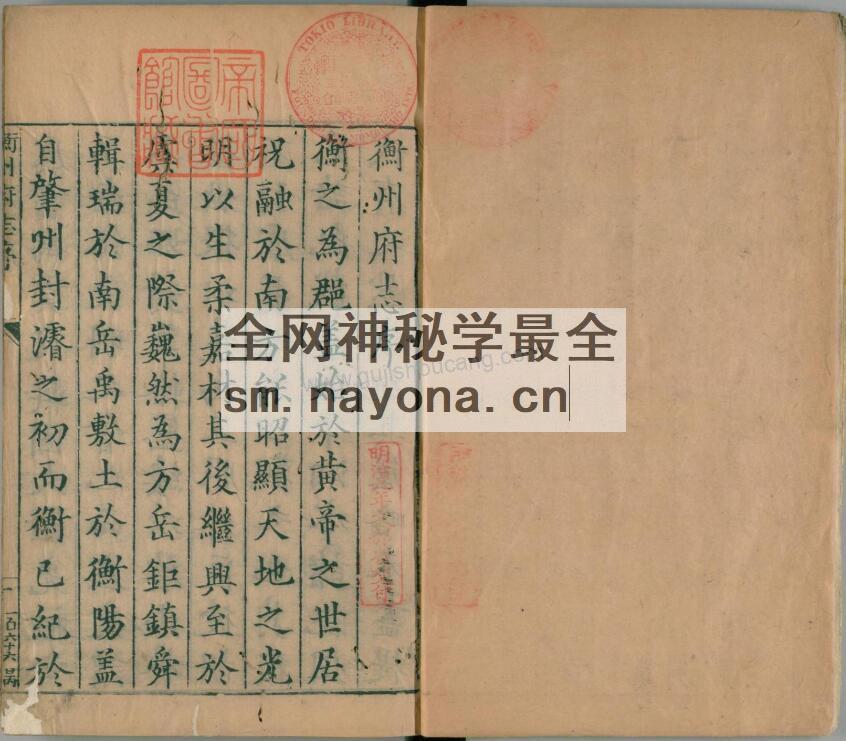 衡州府志序
衡之為郡葢始於黃帝之世居
祝融於南方能昭顯天地之光
明以生柔嘉材其後繼興至於
虞夏之際巍然為方岳鉅鎮舜
輯瑞於南岳禹敷土於衡陽盖
自肇州封濬之初而衡已紀於
衡州府志序
一
一百六十六
TOKIO LIBRARY
帝國圖書館藏
明治年
全网神秘学最全
sm.nayona.cn
www.gujishoucang.co